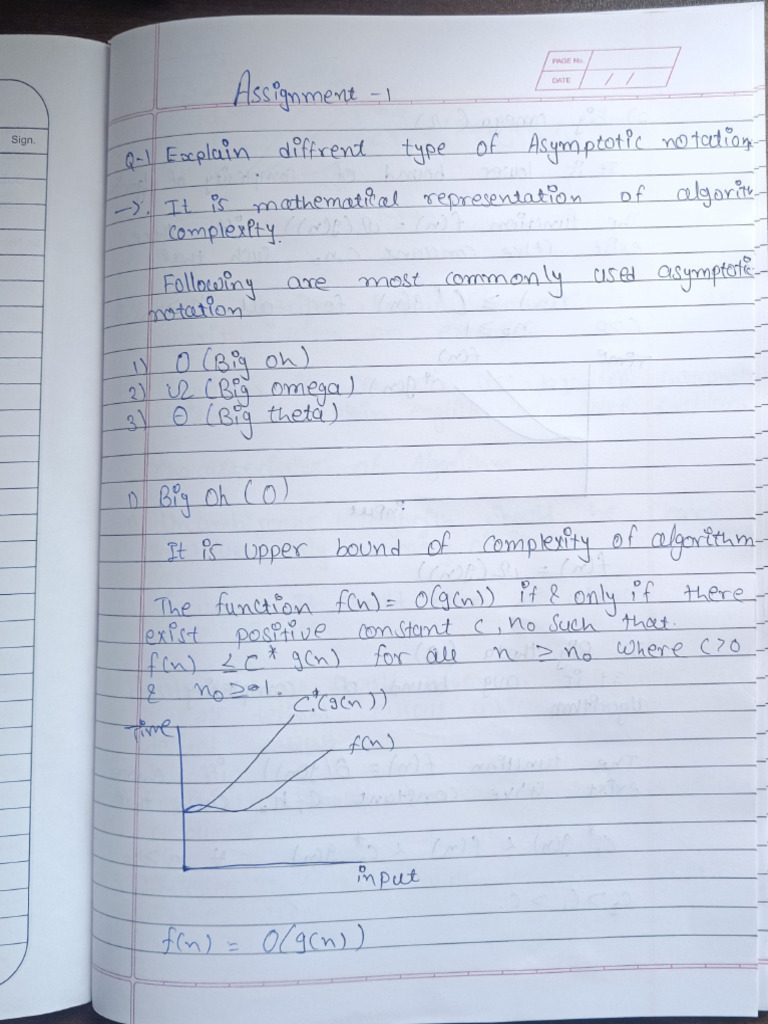 Sign.
PAGE No.
DATE / /
Assignment - 1
Q-1 Explain diffrent type of Asymptotic notation
→ It is mathematical representation of algorith
complexity.
Following are most commonly used asymptotic
notation
1) O (Big oh)
2) Ω (Big omega)
3) Θ (Big theta)
1) Big Oh (O)
It is upper bound of complexity of algorithm
The function f(n) = O(g(n)) if & only if there
exist positive constant C, n0 such that.
f(n) ≤ C * g(n) for all n ≥ n0 where C>0
& n0 ≥ 1.
C*(g(n))
Time
f(n)
input
f(n) = O(g(n))